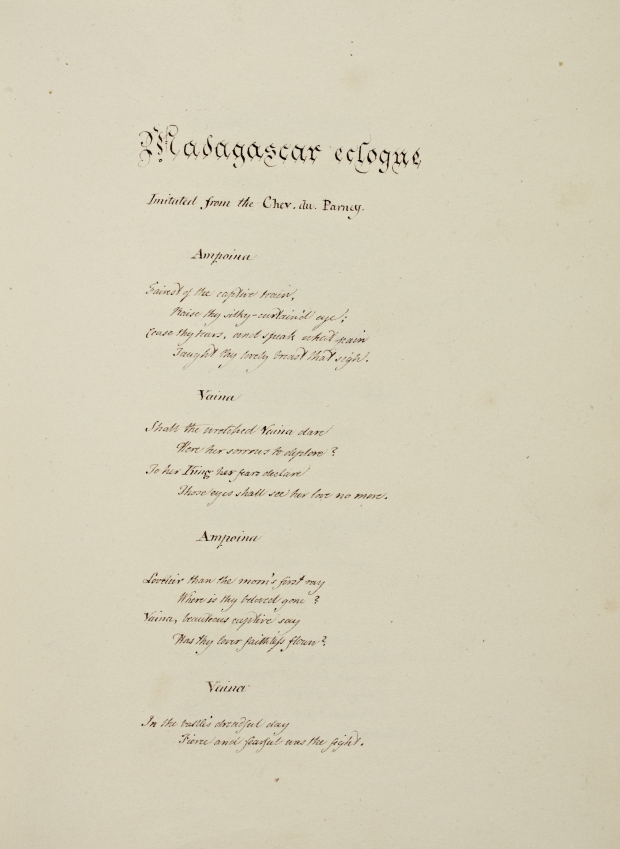 Madagascar eclogue
Imitated from the Chev. du. Parney.
Ampoina
Fairest of the captive train,
Raise thy silky-curtain'd eye;
Cease thy tears, and speak what pain
Taught thy lovely breast that sigh.
Vaina
Shall the wretched Vaina dare
Here her sorrows to deplore?
To her King her fears declare
Those eyes shall see her love no more.
Ampoina
Lovelier than the moon's first ray
Where is thy beloved gone?
Vaina, beauteous captive say
Was thy lover faithless flown?
Vaina
In the battle's dreadful day
Fierce and fearful was the fight.